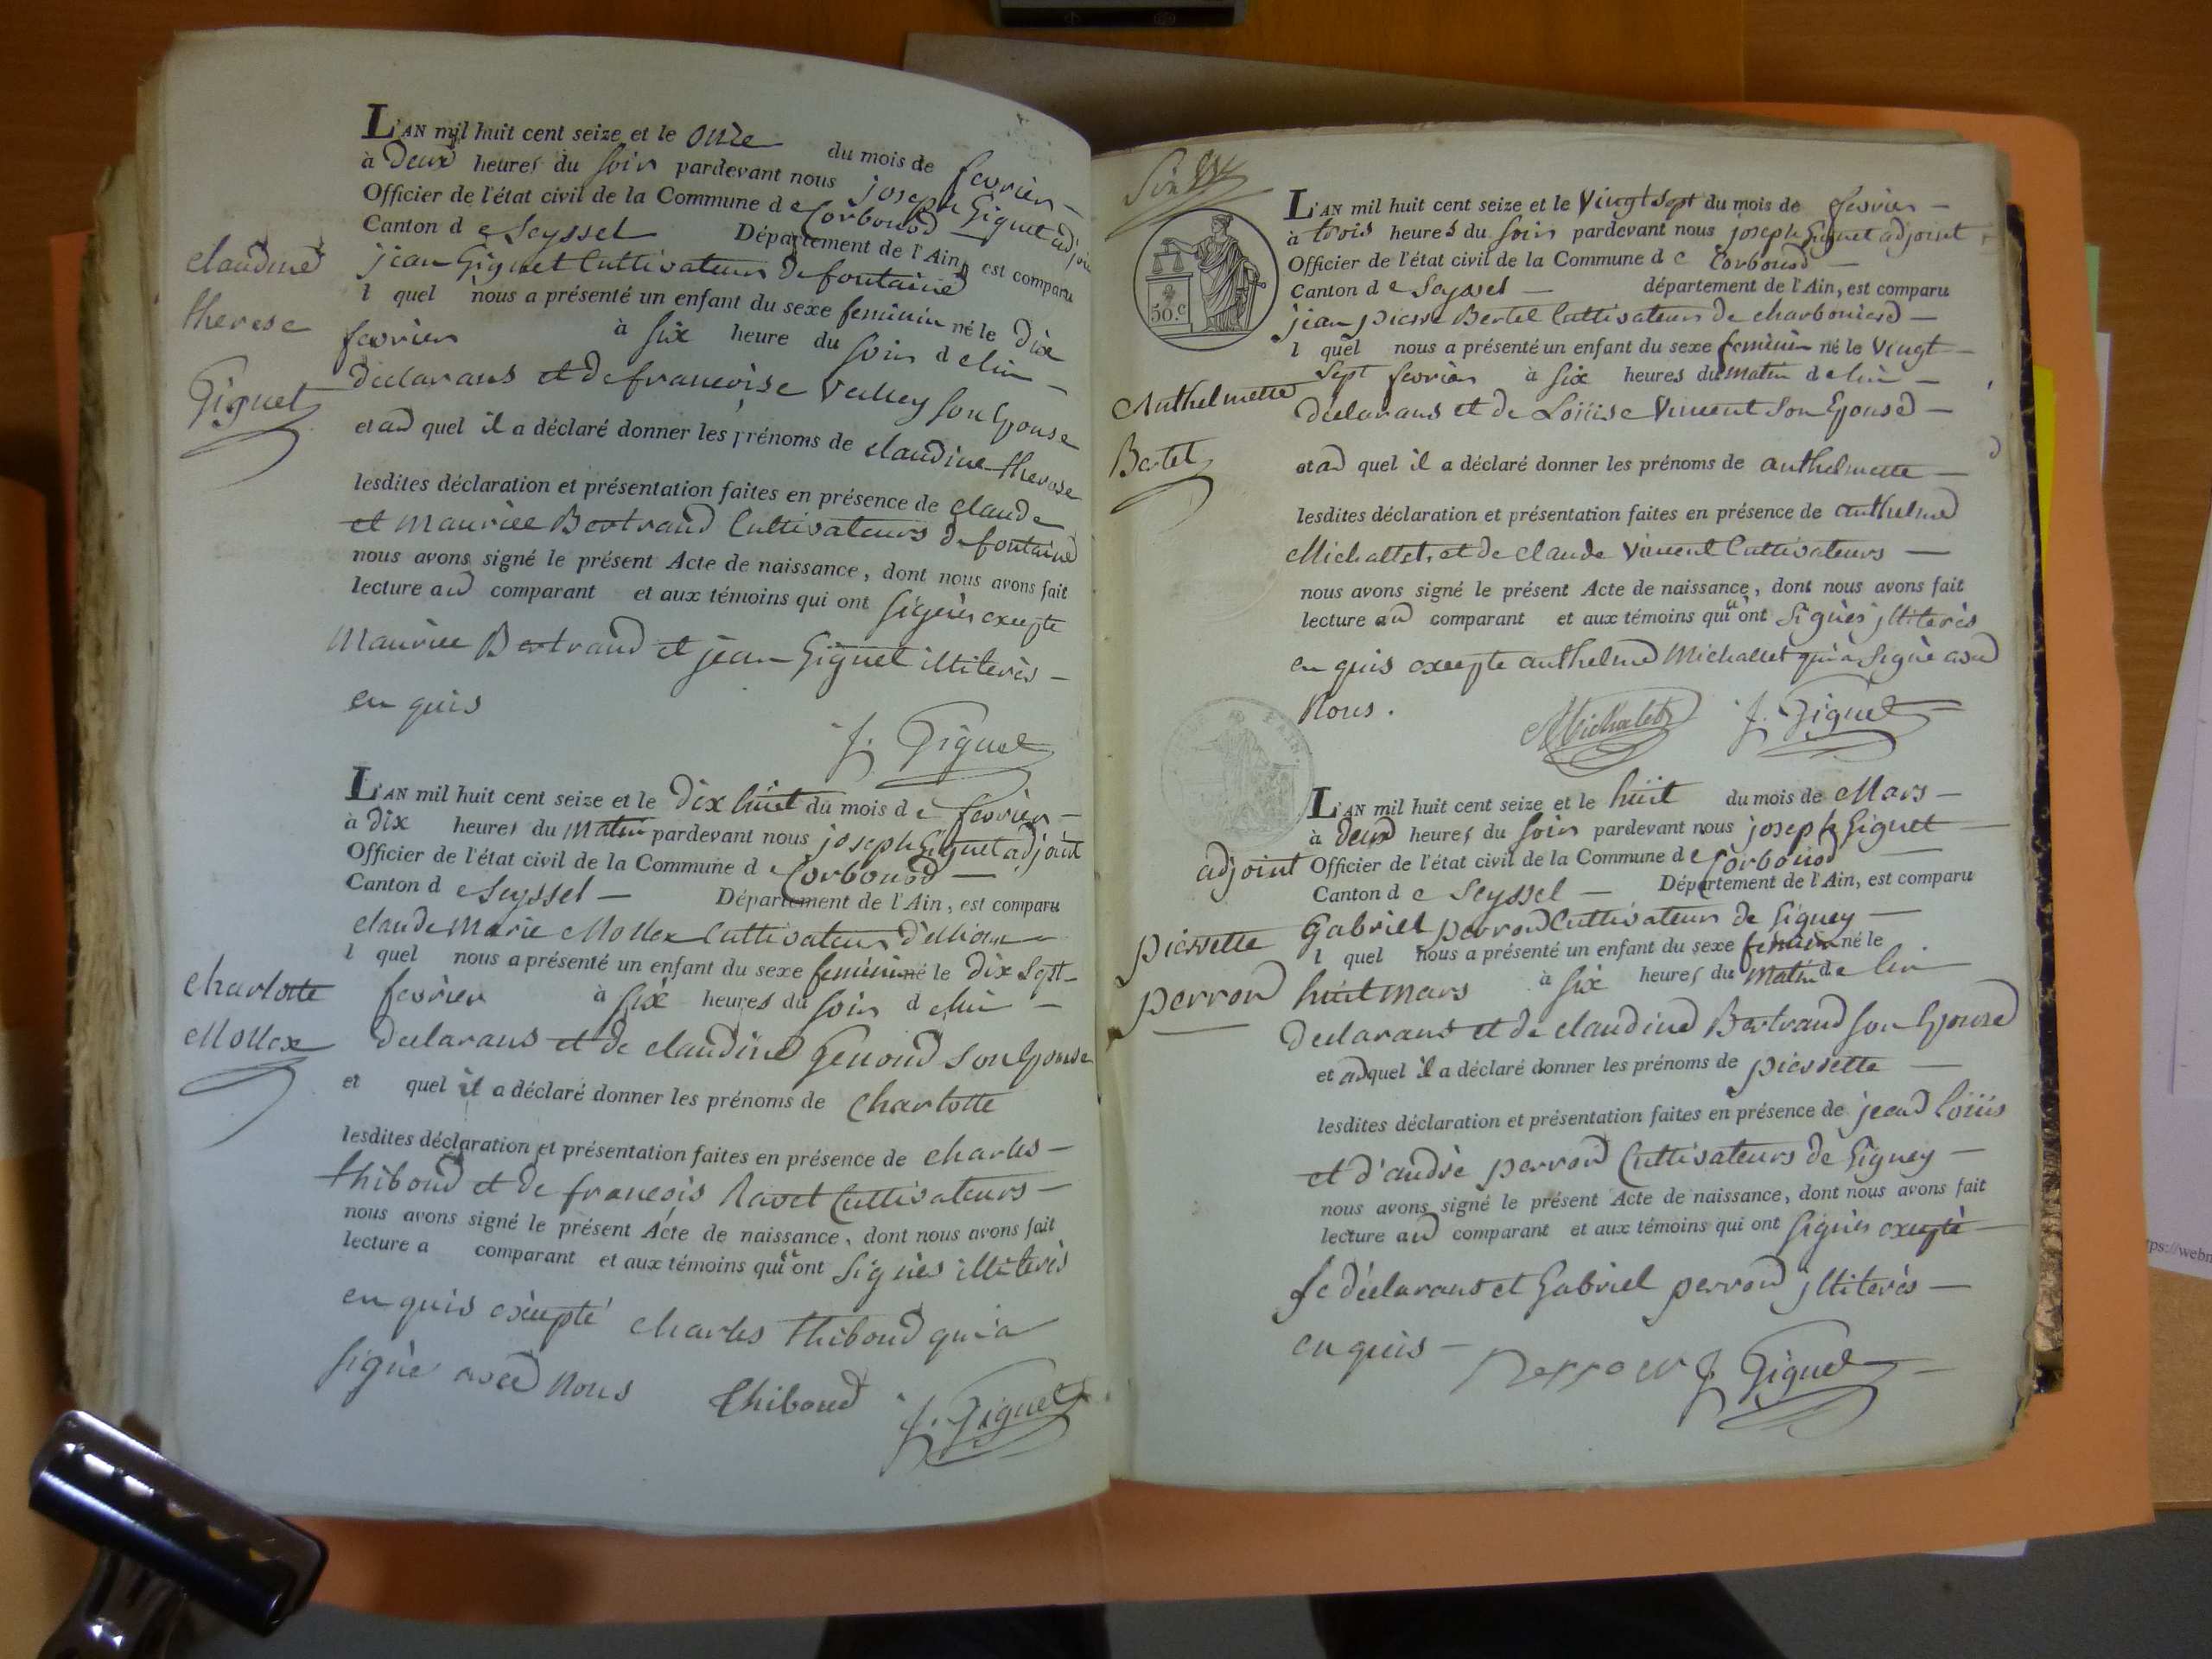 L'AN mil huit cent seize et le onze du mois de fevrier
à deux heures du soir pardevant nous joseph Giguet adjoint
Officier de l'état civil de la Commune de Corbonod
Canton de Seyssel Département de l'Ain, est comparu
jean Giguet Cultivateur de fontaine
l quel nous a présenté un enfant du sexe feminin né le dix
fevrier à six heure du soir de lui
declarans et de francoise Vallley son Epouse
et au quel il a déclaré donner les prénoms de claudine therese
lesdites déclaration et présentation faites en présence de claude
et Maurice Bertrand Cultivateurs de fontaine
nous avons signé le présent Acte de naissance, dont nous avons fait
lecture au comparant et aux témoins qui ont signés excepte
Maurice Bertrand et jean Giguet illiterès
en quis
J. Giguet
claudine
therese
Giguet
L'AN mil huit cent seize et le dix huit du mois de fevrier
à dix heures du matin pardevant nous joseph Giguet adjoint
Officier de l'état civil de la Commune de Corbonod
Canton de Seyssel Département de l'Ain, est comparu
claude Marie Mollex Cultivateur
l quel nous a présenté un enfant du sexe feminin né le dix sept
fevrier à six heures du soir de lui
declarans et de claudine Genoud son Epouse
et quel il a déclaré donner les prénoms de charlotte
lesdites déclaration et présentation faites en présence de charles
thiboud et de françois Ravet Cultivateurs
nous avons signé le présent Acte de naissance, dont nous avons fait
lecture a comparant et aux témoins qui ont signès illiterès
en quis excepté charles thiboud qui a
signè avec nous Thiboud J. Giguet
charlotte
Mollex
50.c
L'AN mil huit cent seize et le vingt sept du mois de fevrier
à trois heures du soir pardevant nous joseph Giguet adjoint
Officier de l'état civil de la Commune de Corbonod
Canton de Seyssel département de l'Ain, est comparu
jean pierre Bertet Cultivateur de charboniere
l quel nous a présenté un enfant du sexe feminin né le vingt
sept fevrier à six heures du matin de lui
declarans et de Loüise Vincent son Epouse
et au quel il a déclaré donner les prénoms de anthelmette
lesdites déclaration et présentation faites en présence de anthelme
Michallet, et de claude Vincent Cultivateurs
nous avons signé le présent Acte de naissance, dont nous avons fait
lecture au comparant et aux témoins qui ont signès jlliterès
en quis excepte anthelme Michallet qui a signè avec
Nous.
AMichalet J. Giguet
Anthelmette
Bertet
L'AN mil huit cent seize et le huit du mois de Mars
à deux heures du soir pardevant nous joseph Giguet
adjoint Officier de l'état civil de la Commune de Corbonod
Canton de Seyssel Département de l'Ain, est comparu
Gabriel perron Cultivateur de Gigney
l quel nous a présenté un enfant du sexe feminin né le
huit mars à six heures du matin de lui
declarans et de claudine Bertrand son Epouse
et au quel il a déclaré donner les prénoms de pierrette
lesdites déclaration et présentation faites en présence de jean Loüis
et d'andrè perron Cultivateurs de Gigney
nous avons signé le présent Acte de naissance, dont nous avons fait
lecture au comparant et aux témoins qui ont signès excepté
le déclarans et Gabriel perron jlliterès
en quis
Perron J. Giguet
pierrette
perron